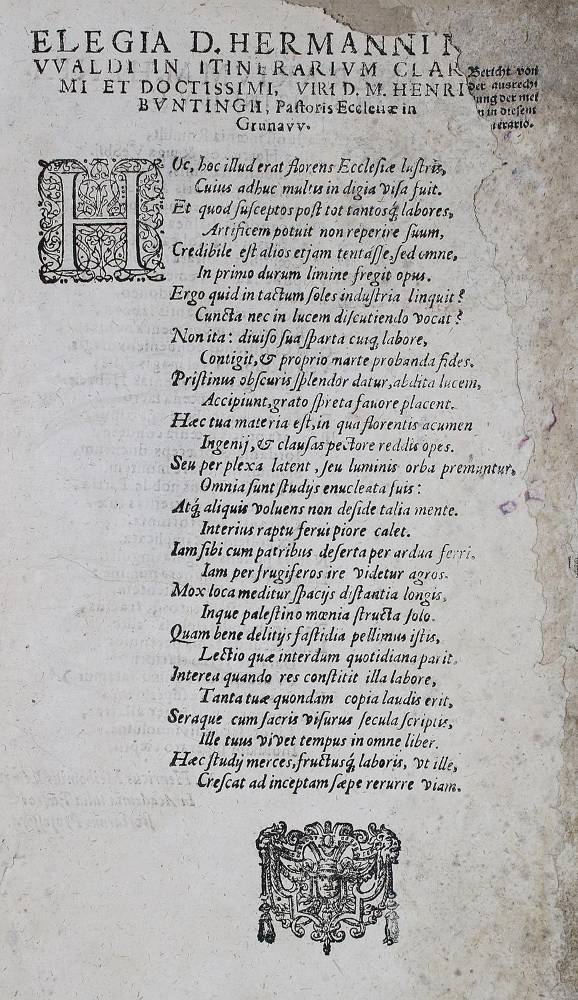 ELEGIA D. HERMANNI
VVALDI IN ITINERARIVM CLAR
MI ET DOCTISSIMI, VIRI D. M. HENRI
BVNTINGII, Paſtoris Eccleſiæ in
Grunavv.
Bericht von
der ausrechi
ung der mei
n in dieſem
erario.
HUc, hoc illud erat florens Eccleſiæ luſtris,
Cuius adhuc multus in digia viſa fuit.
Et quod ſuſceptos poſt tot tantosq́; labores,
Artificem potuit non reperire ſuum,
Credibile eſt alios etjam tentáſſe, ſed omne,
In primo durum limine fregit opus.
Ergo quid in tactum ſoles induſtria linquit?
Cuncta nec in lucem diſcutiendo vocat?
Non ita: diuiſo ſua ſparta cuiq́; labore,
Contigit, & proprio marte probanda fides.
Priſtinus obſcuris ſplendor datur, abdita lucem,
Accipiunt, grato ſpreta fauore placent.
Hæc tua materia eſt, in qua florentis acumen
Ingenij, & clauſas pectore reddis opes.
Seu per plexa latent, ſeu luminis orba premuntur,
Omnia ſunt ſtudijs enucleata ſuis:
Atq́; aliquis voluens non deſide talia mente.
Interius raptu ferui piore calet.
Iam ſibi cum patribus deſerta per ardua ferri,
Iam per frugiferos ire videtur agros.
Mox loca meditur ſpacijs diſtantia longis,
Inque paleſtino mœnia ſtructa ſolo.
Quam bene delitijs faſtidia pellimus iſtis,
Lectio quæ interdum quotidiana parit,
Interea quando res conſtitit illa labore,
Tanta tuæ quondam copia laudis erit,
Seraque cum ſacris viſurus ſecula ſcriptis,
Ille tuus vivet tempus in omne liber.
Hæc ſtudij merces, fructusq́; laboris, vt ille,
Creſcat ad inceptam ſæpe rerurre viam.